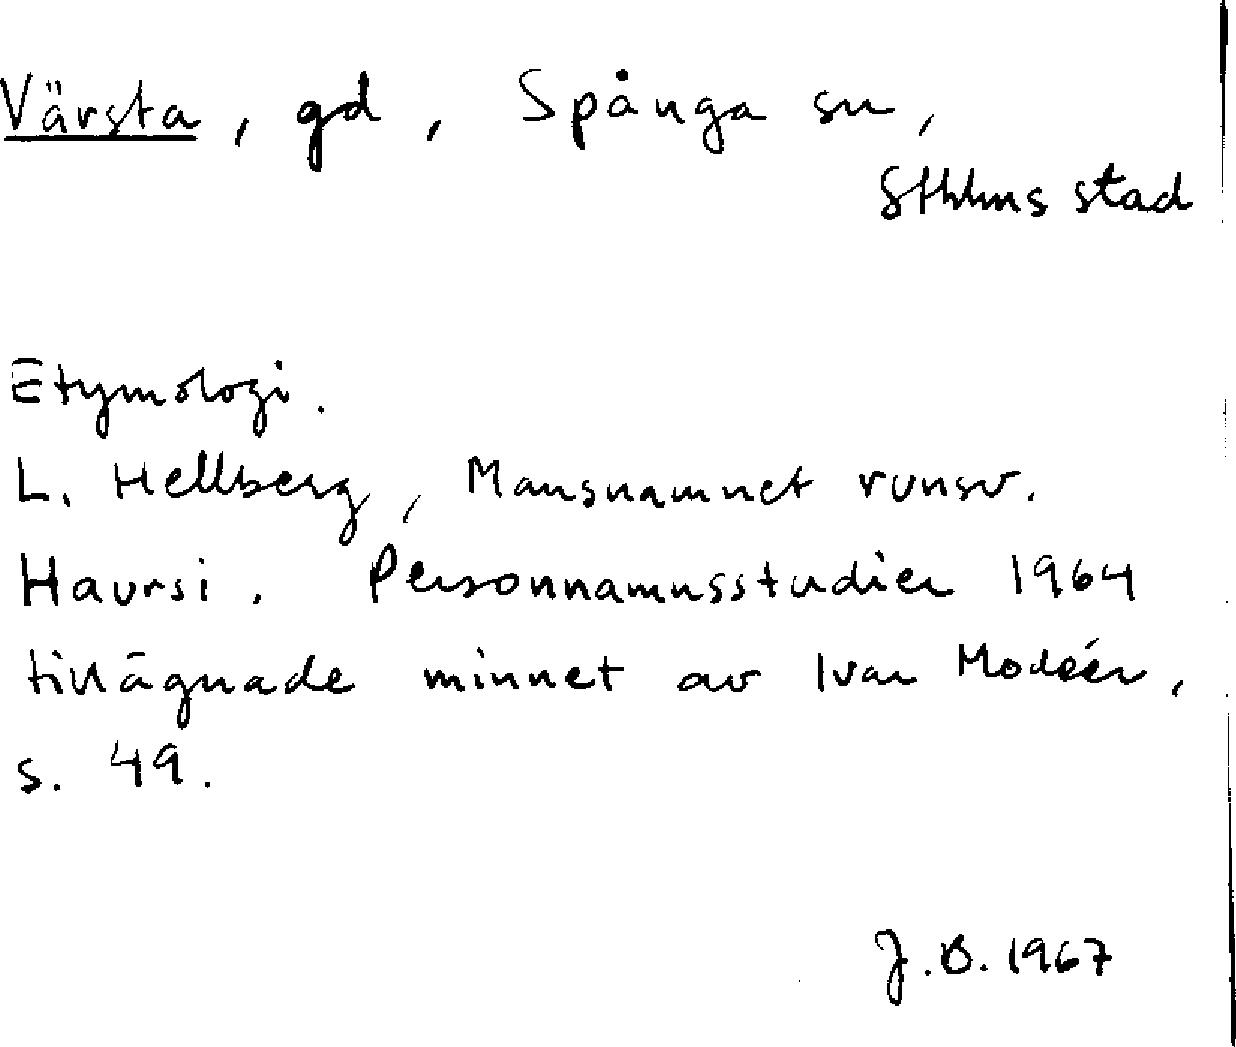 Värsta, gd, Spånga sn,
Sthlms stad
Etymologi.
L. Hellberg, Mansnamnet runsv.
Haursi. Personnamnsstudier 1964
tillägnade minnet av Ivar Modéer,
s. 49.
J.B. 1967